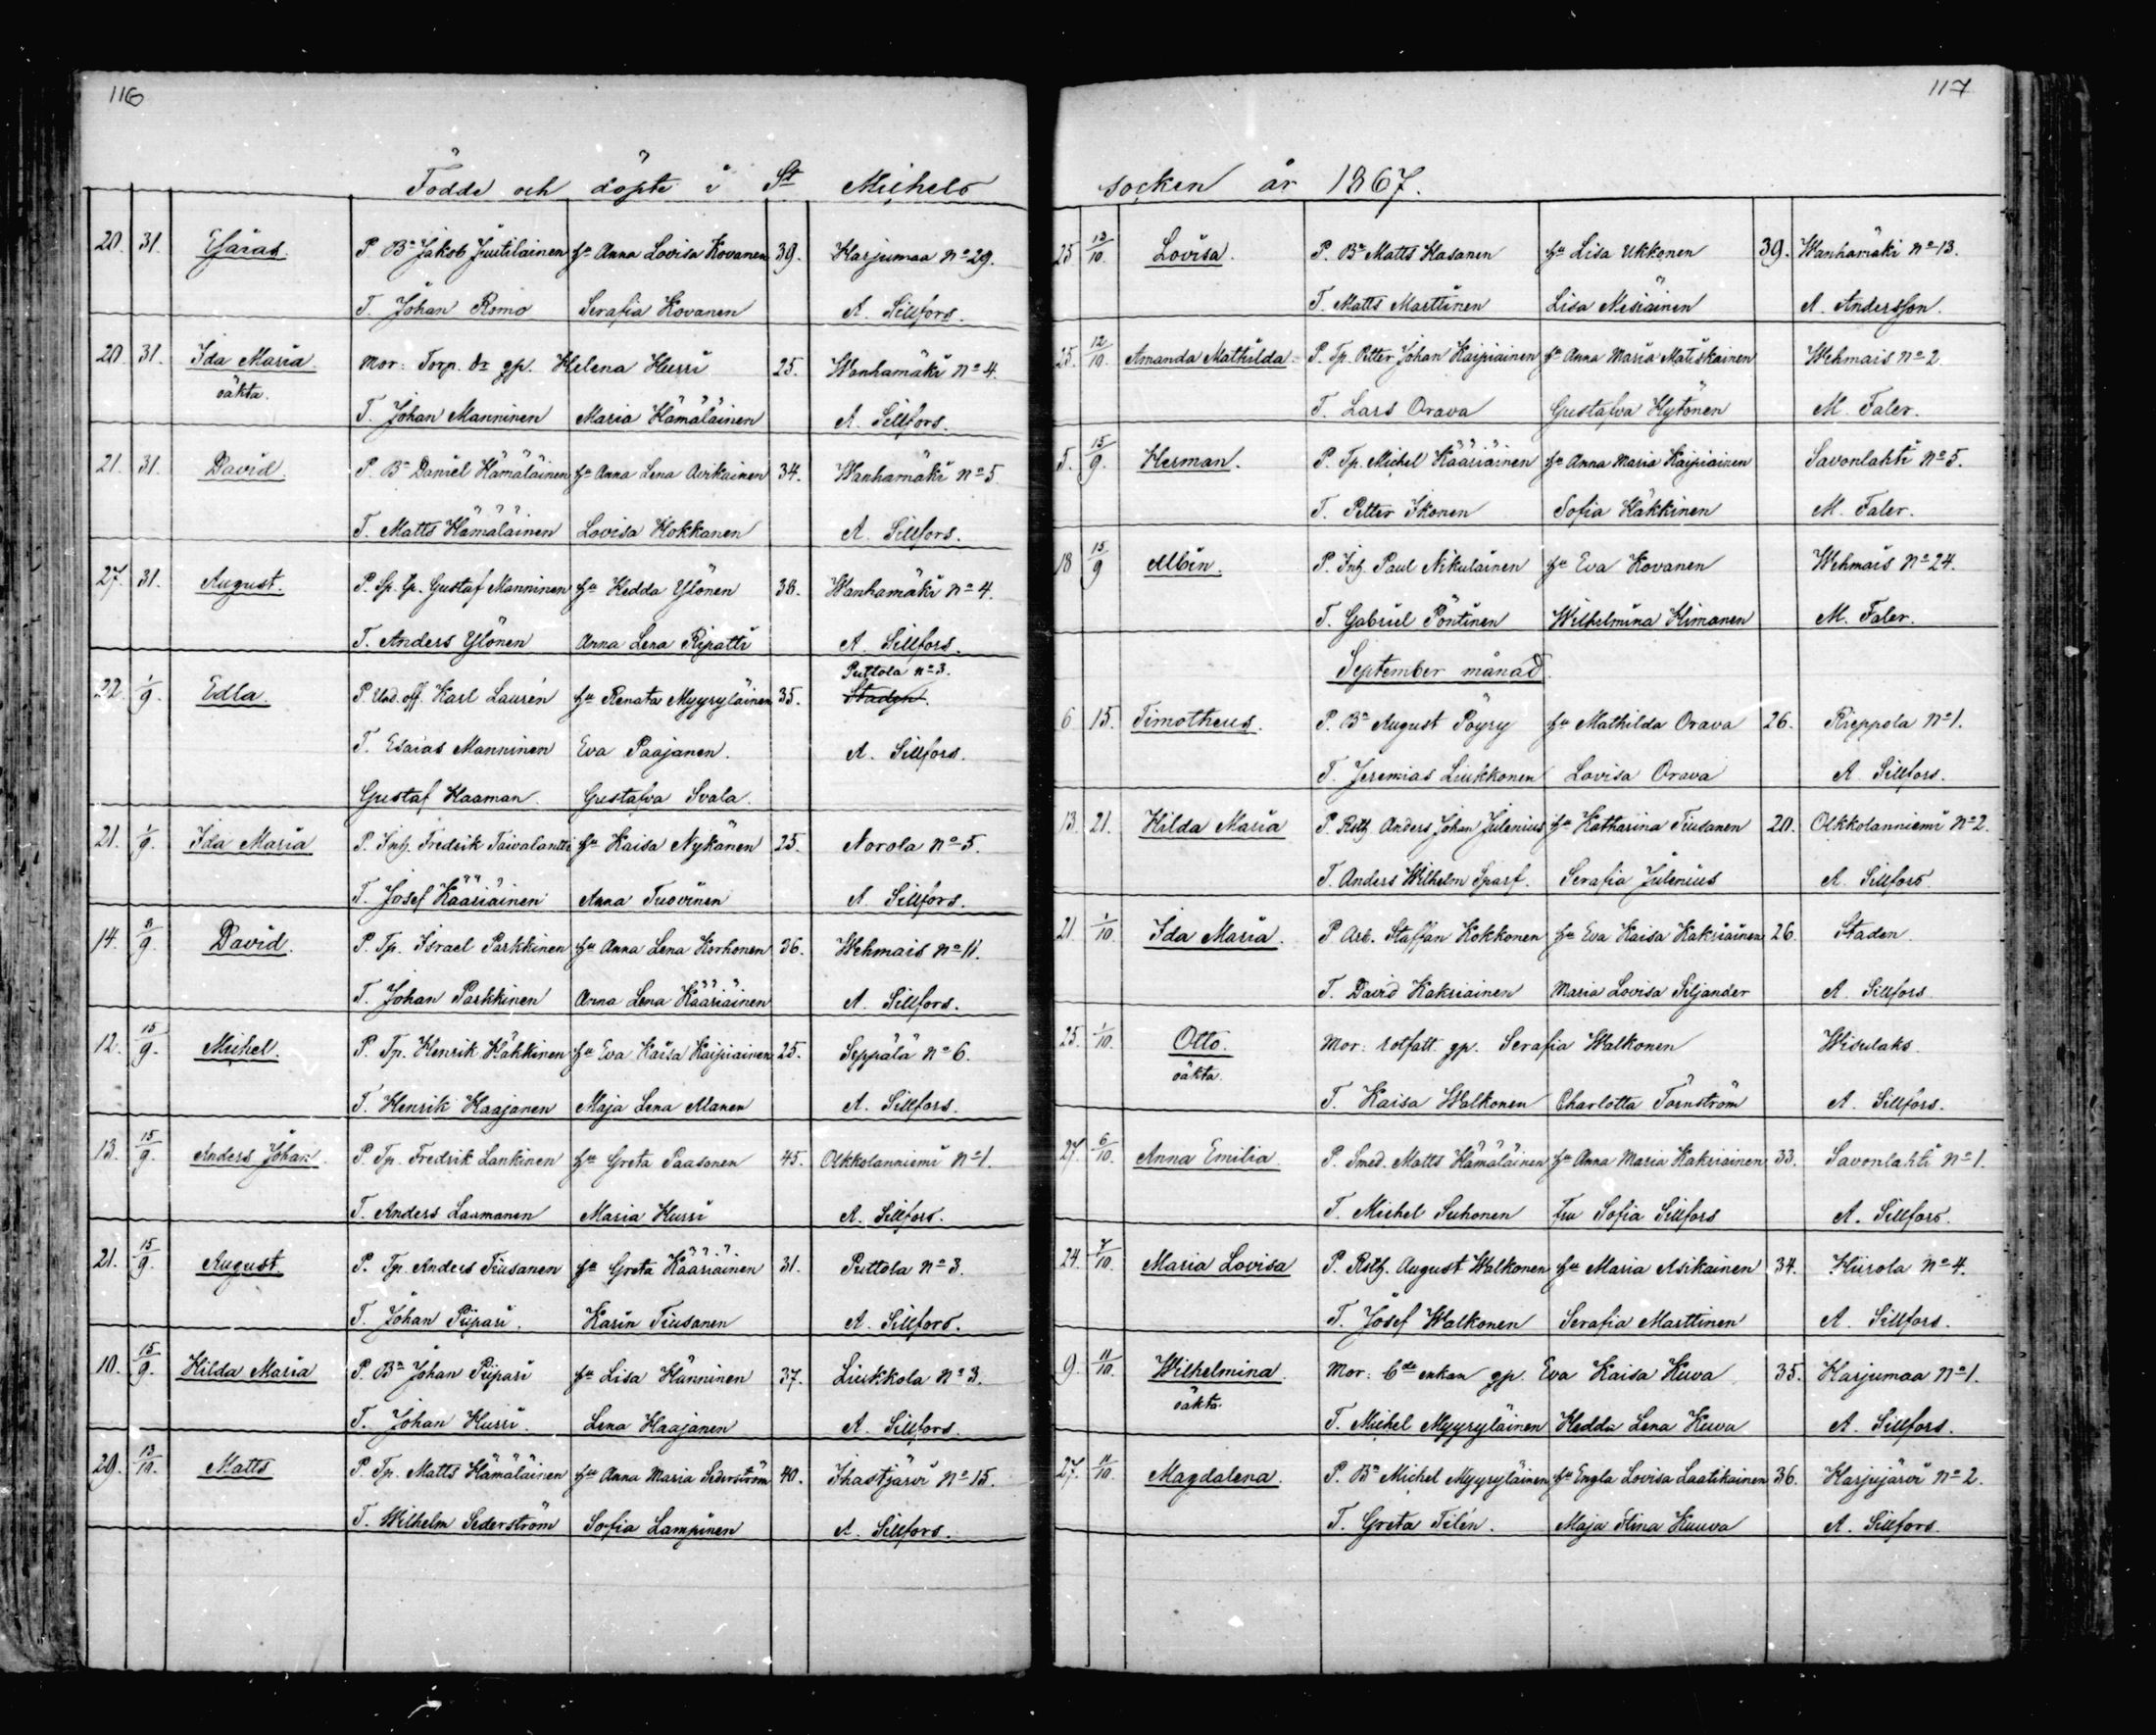 116
Födde och döpte i St Michels
20. 31. Esaias. P. Bn Jakob Juutilainen hu Anna Lovisa Kovanen 39. Harjumaa No 29.
T. Johan Romo Serafia Kovanen A. Sillfors.
20. 31. Ida Maria. Mor: Torp. dr gp. Helena Hurri 25. Wanhamäki No 4.
oäkta.
T. Johan Manninen Maria Hämäläinen A. Sillfors.
21. 31. David. P. Bn Daniel Hämäläinen hu Anna Lena Avikainen 34. Wanhamäki No 5
T. Matts Hämäläinen Lovisa Hokkanen A. Sillfors.
27. 31. August. P. Sp. Gustaf Manninen hu Hedda Ylönen 38. Wanhamäki No 4.
T. Anders Ylönen Anna Lena Ripatti A. Sillfors.
Puttola No 3.
22. 1/9. Edla. P. Und. off. Karl Laurén hu Renata Myyryläinen 35. Staden.
T. Esaias Manninen Eva Paajanen. A. Sillfors.
Gustaf Haaman. Gustafva Svala.
21. 1/9. Ida Maria P. Inh. Fredrik Taivalantti hu Kaisa Nykänen 25. Norola No 5.
T. Josef Kääriäinen Anna Tuovinen A. Sillfors.
14. 8/9. David. P. Tp. Israel Parkkinen hu Anna Lena Korhonen 36. Wehmais No 11.
T. Johan Parkkinen Anna Lena Kääriäinen A. Sillfors.
12. 15/9. Michel. P. Tp. Henrik Häkkinen hu Eva Kaisa Kaipiainen 25. Seppälä No 6.
T. Henrik Haajanen Maja Lena Alanen A. Sillfors.
13. 15/9. Anders Johan. P. Tp. Fredrik Lankinen hu Greta Paasonen 45. Olkkolanniemi No 1.
T. Anders Laamanen Maria Hurri A. Sillfors.
21. 15/9. August P. Tp. Anders Tiusanen hu Greta Kääriäinen 31. Puttola No 3.
T. Johan Piipari. Karin Tiusanen A. Sillfors.
10. 15/9. Hilda Maria P. Bn Johan Piipari hu Lisa Hänninen 37. Liukkola No 3.
T. Johan Hurri. Lena Haajanen A. Sillfors.
29. 13/10. Matts P. Tp. Matts Hämäläinen hu Anna Maria Sederström 40. Ihastjärvi No 15.
T. Wilhelm Sederström Sofia Lampinen A. Sillfors.
117
socken år 1867.
25 13/10. Lovisa. P. Bn Matts Hasanen hu Lisa Ukkonen 39. Wanhamäki No 13.
T. Matts Marttinen Lisa Nisiäinen A. Andersson.
25. 12/10. Amanda Mathilda. P. Tp. Petter Johan Kaipiainen hu Anna Maria Matiskainen Wehmais No 2.
T. Lars Orava Gustafva Hytönen M. Faler.
5. 15/9. Herman. P. Tp. Michel Kääriäinen hu Anna Maria Kaipiainen Savonlahti No 5.
T. Petter Ikonen Sofia Häkkinen M. Faler.
18 15/9 Albin. P. Inh. Paul Nikulainen hu Eva Kovanen Wehmais No 24.
T. Gabriel Pöntinen Wilhelmina Himanen M. Faler.
September månad.
6 15. Timotheus. P. Bn August Pöyry hu Mathilda Orava 26. Rieppola No 1.
T. Jeremias Liukkonen Lovisa Orava A. Sillfors.
13. 21. Hilda Maria P. Rsth Anders Johan Julenius hu Katharina Tiusanen 20. Olkkolanniemi No 2.
T. Anders Wilhelm Sparf. Serafia Julenius A. Sillfors.
21. 1/10. Ida Maria. P. Arb. Staffan Kokkonen hu Eva Kaisa Kakriainen 26. Staden.
T. David Kakriainen Maria Lovisa Siljander A. Sillfors
25. 1/10. Otto. Mor: rotfatt. gp. Serafia Walkonen Wisulaks.
oäkta.
T. Kaisa Walkonen Charlotta Törnström A. Sillfors.
27. 6/10. Anna Emilia. P. Smed. Matts Hämäläinen hu Anna Maria Kakriainen 33. Savonlahti No 1.
T. Michel Suhonen Fru Sofia Sillfors A. Sillfors.
24. 7/10. Maria Lovisa P. Rsth. August Walkonen hu Maria Asikainen 34. Hiirola No 4.
T. Josef Walkonen Serafia Marttinen A. Sillfors.
9. 11/10. Wilhelmina. Mor: bde enkan gp. Eva Kaisa Kuva 35. Harjumaa No 1.
oäkta.
T. Michel Myyryläinen Hedda Lena Kuva A. Sillfors.
27. 11/10. Magdalena. P. Bn Michel Myyryläinen hu Engla Lovisa Laatikainen 36. Harjujärvi No 2.
T. Greta Tilén. Maja Stina Kuuva A. Sillfors.